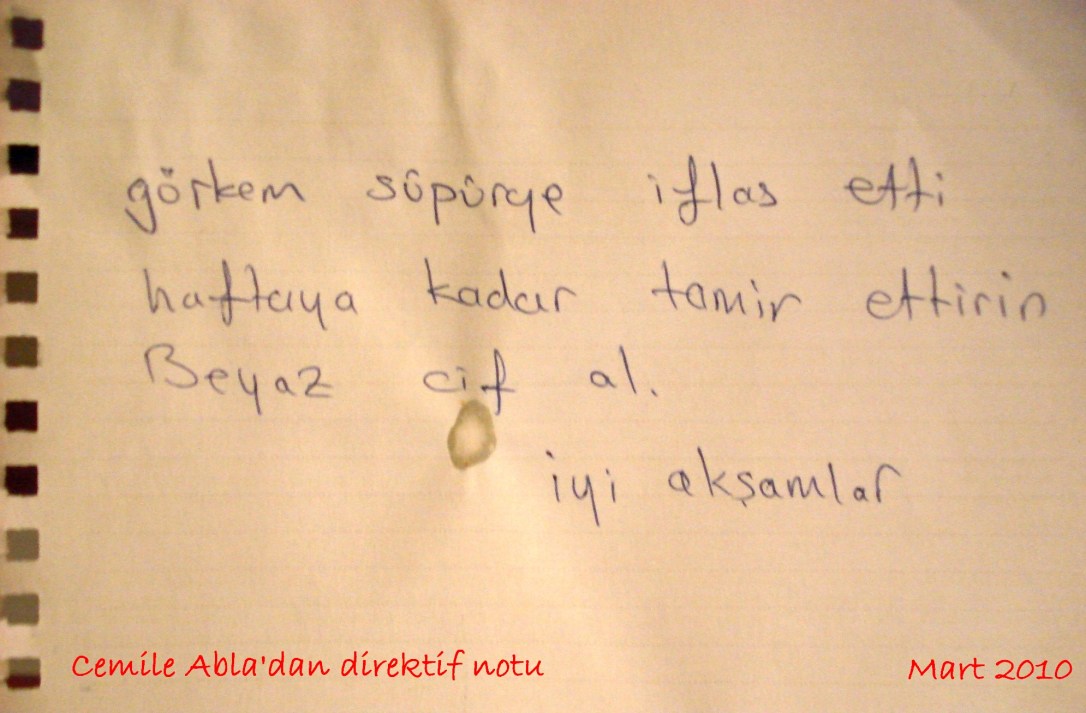 görkem süpürge iflas etti
haftaya kadar tamir ettirin
Beyaz cif al.
iyi akşamlar
Cemile Abla'dan direktif notu
Mart 2010